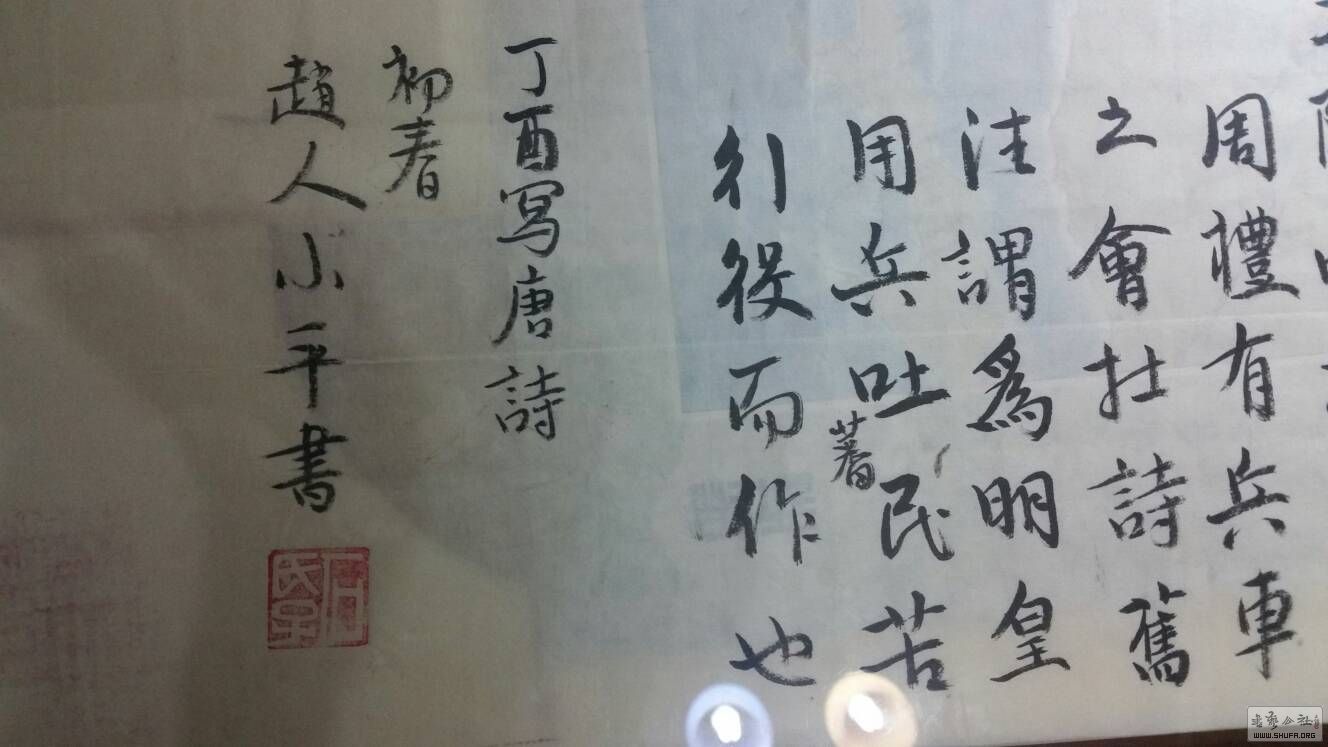 周禮有兵車
之會杜詩舊
注謂爲明皇
用兵吐蕃民苦
行役而作也
丁酉冩唐詩
初春
趙人小平書
WWW.SHUFA.ORG